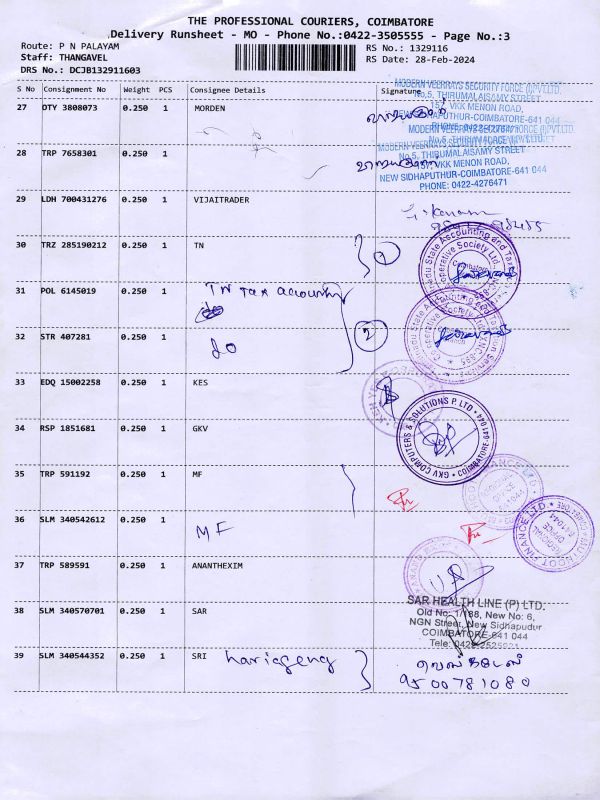 THE PROFESSIONAL COURIERS, COIMBATORE
Delivery Runsheet - MO - Phone No.:0422-3505555 - Page No.:3
Route: P N PALAYAM
RS No.: 1329116
Staff: THANGAVEL
RS Date: 28-Feb-2024
DRS No.: DCJB132911603
S No Consignment No Weight PCS Consignee Details Signature
MODERN VEERRAYS SECURITY FORCE (I)PVT.LTD.
No.5, THIRUMALAISAMY STREET
157, VKK MENON ROAD,
27 DTY 3808073 0.250 1 MORDEN
SIDHAPUTHUR-COIMBATORE-641 044
MODERN VEERRAYS SECURITY FORCE (I)PVT.LTD.
No.5, THIRUMALAISAMY STREET
28 TRP 7658301 0.250 1
157, VKK MENON ROAD,
NEW SIDHAPUTUR-COIMBATORE-641 044
PHONE: 0422-4276471
29 LDH 700431276 0.250 1 VIJAITRADER
30 TRZ 285190212 0.250 1 TN
1
31 POL 6145019 0.250 1 TN Tax accounting
32 STR 407281 0.250 1 do
2
33 EDQ 15002258 0.250 1 KES
34 RSP 1851681 0.250 1 GKV
GKV COMPUTERS & SOLUTIONS P.LTD
COIMBATORE-641 044
35 TRP 591192 0.250 1 MF
36 SLM 340542612 0.250 1 MF
37 TRP 589591 0.250 1 ANANTHEXIM
38 SLM 340570701 0.250 1 SAR
SAR HEALTH LINE (P) LTD.
Old No: 1/188, New No: 6,
NGN Street, New Sidhapudur
COIMBATORE-641 044
39 SLM 340544352 0.250 1 SRI
9500781080